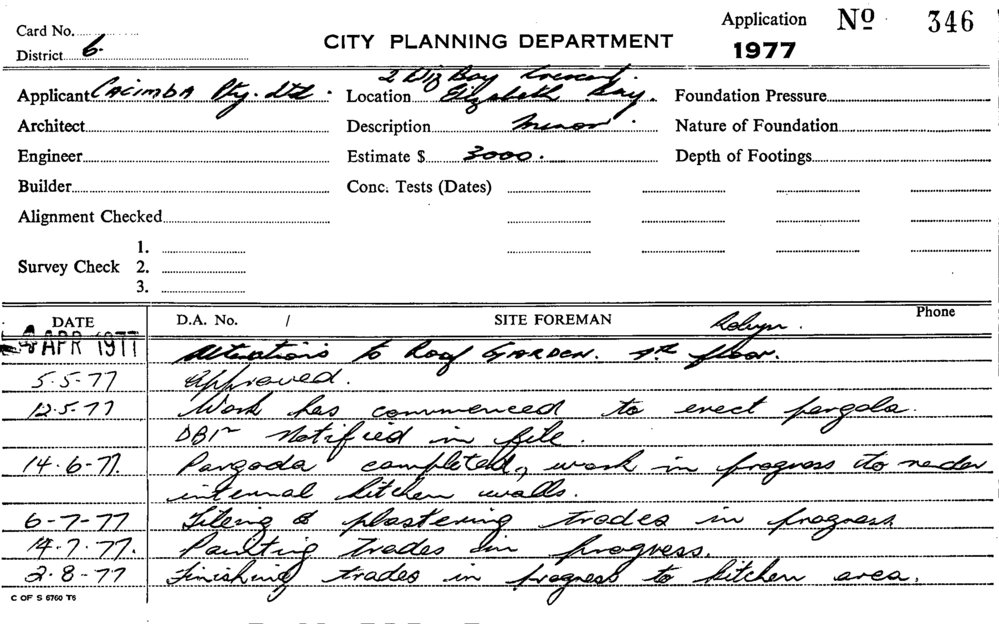 Card No.
District 6.
CITY PLANNING DEPARTMENT
Application
1977
No 346
Applicant CACIMBA Pty. Ltd.
2 Eliz Bay Crescent.
Location Elizabeth Bay.
Foundation Pressure
Architect
Description Minor.
Nature of Foundation
Engineer
Estimate $ 3000.
Depth of Footings
Builder
Conc. Tests (Dates)
Alignment Checked
Survey Check
1.
2.
3.
DATE D.A. No. / SITE FOREMAN Robyn. Phone
APR 1977 Alterations to Roof GARDEN. floor.
5.5.77 Approved.
12.5.77 Work has commenced to erect pergola.
notified in file.
14.6.77. Pargoda completed, work in progress to render
internal kitchen walls.
6-7-77 Tileing & plastering trades in progress
14.7.77. Painting trades in progress.
2.8-77 Finishing trades in progress to kitchen area.
C OF S 6760 T6